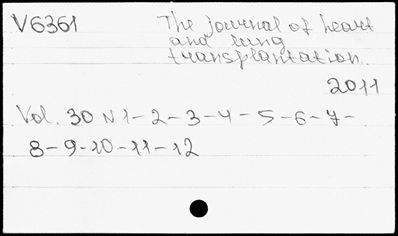 V6361
The journal of heart
and lung
transplantation.
2011
Vol. 30 N 1-2-3-4-5-6-7-
8-9-10-11-12